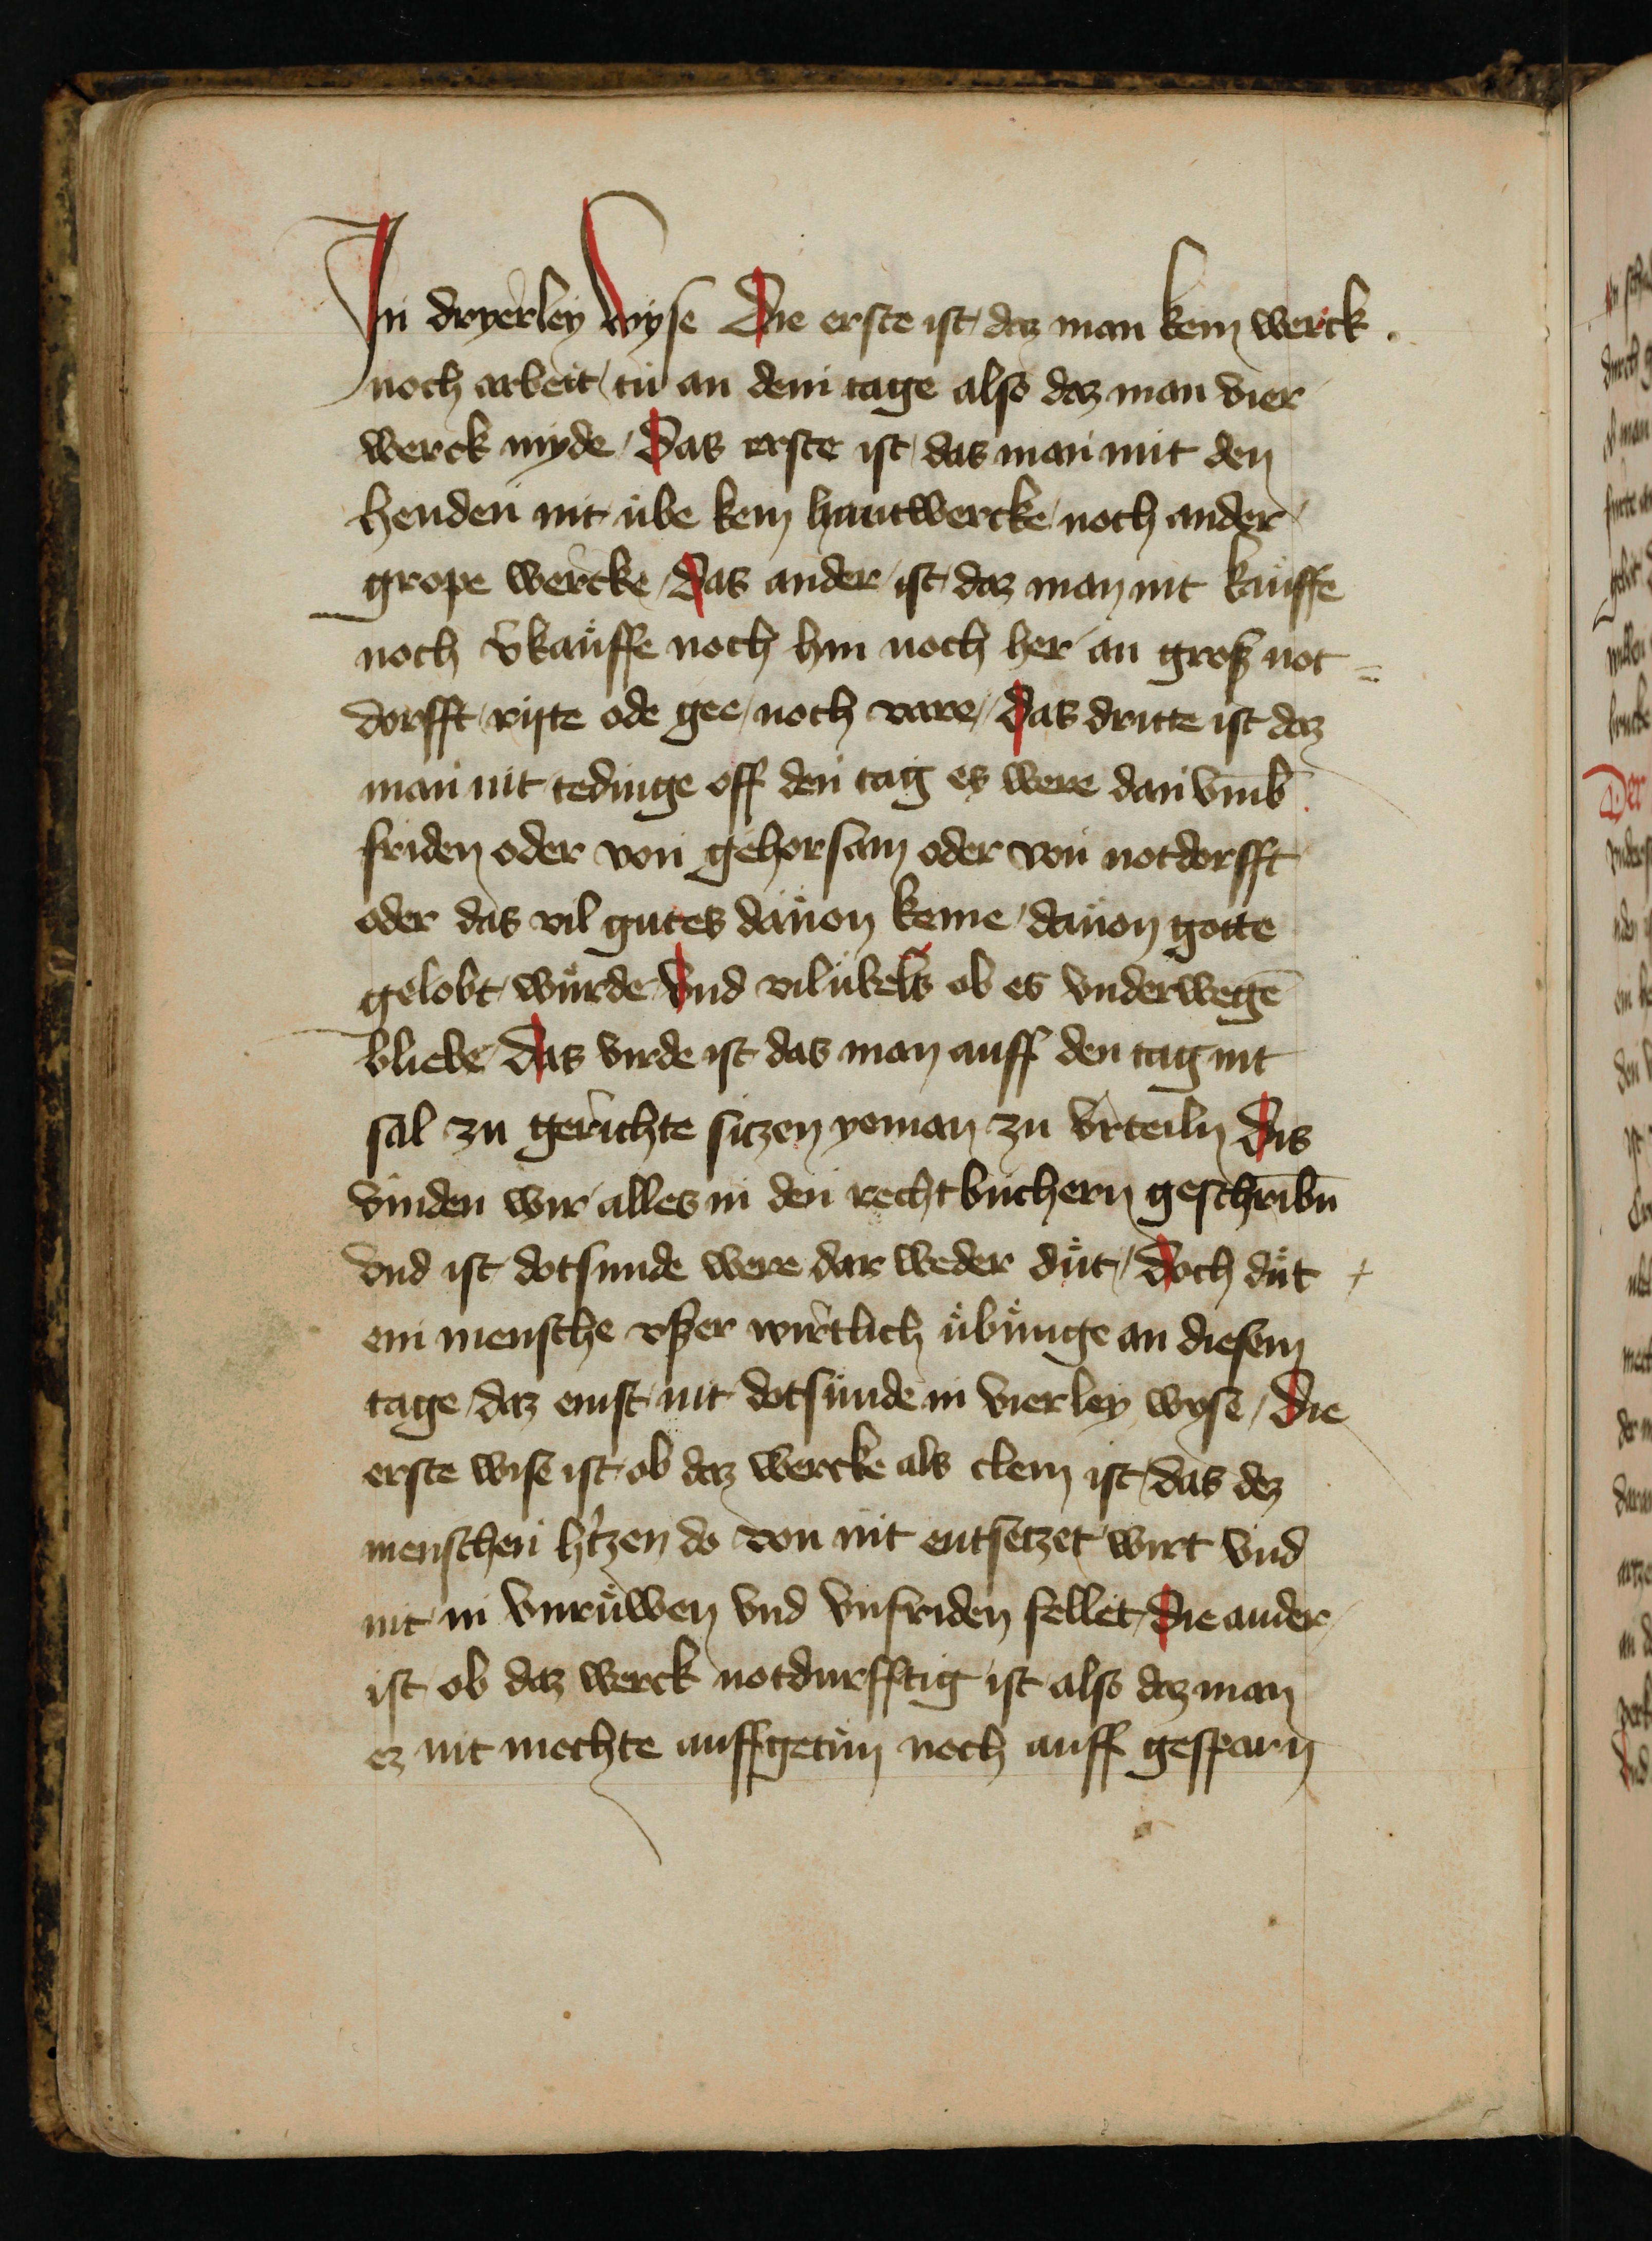 In dryerley wyse Die erste ist daz man kein werck
noch arbeit tu an dem tage also daz man vier
werck myde / Das erste ist das man mit den
henden nit übe kein hantwercke noch ander
grope wercke / Das ander ist daz man nit kauffe
noch v̾kauffe noch hin noch her an groß not =
dorfft rijte ode gee / noch vare / Das dritte ist daz
man nit tedinge off den tag es were dan vmb
friden oder von gehorsam oder von notdorfft
oder das vil gutes dauon keme / dauon gotte
gelobt würde Vnd vil übels ob es vnderwegē
bliebe Das virde ist das man auff den tag nit
sal zu gerichte sitzen yeman zu vrteiln Dis
vinden wir alles in den rechtbuchern geschribn̄
vnd ist dotsunde were dar weder düt / Doch düt +
ein mensche vßer wirtlich übünge an diesem
tage daz enist nit dotsünde in vierley wyse / Die
erste wise ist ob daz wercke als clein ist / das dez
menschen h̾tzen do von nit entsetzet wirt vnd
nit in vnrüwen vnd vnfriden fellet / Die ander
ist ob daz werck notdurfftig ist also daz man
ez nit mochte auffgetün noch auff gesparn